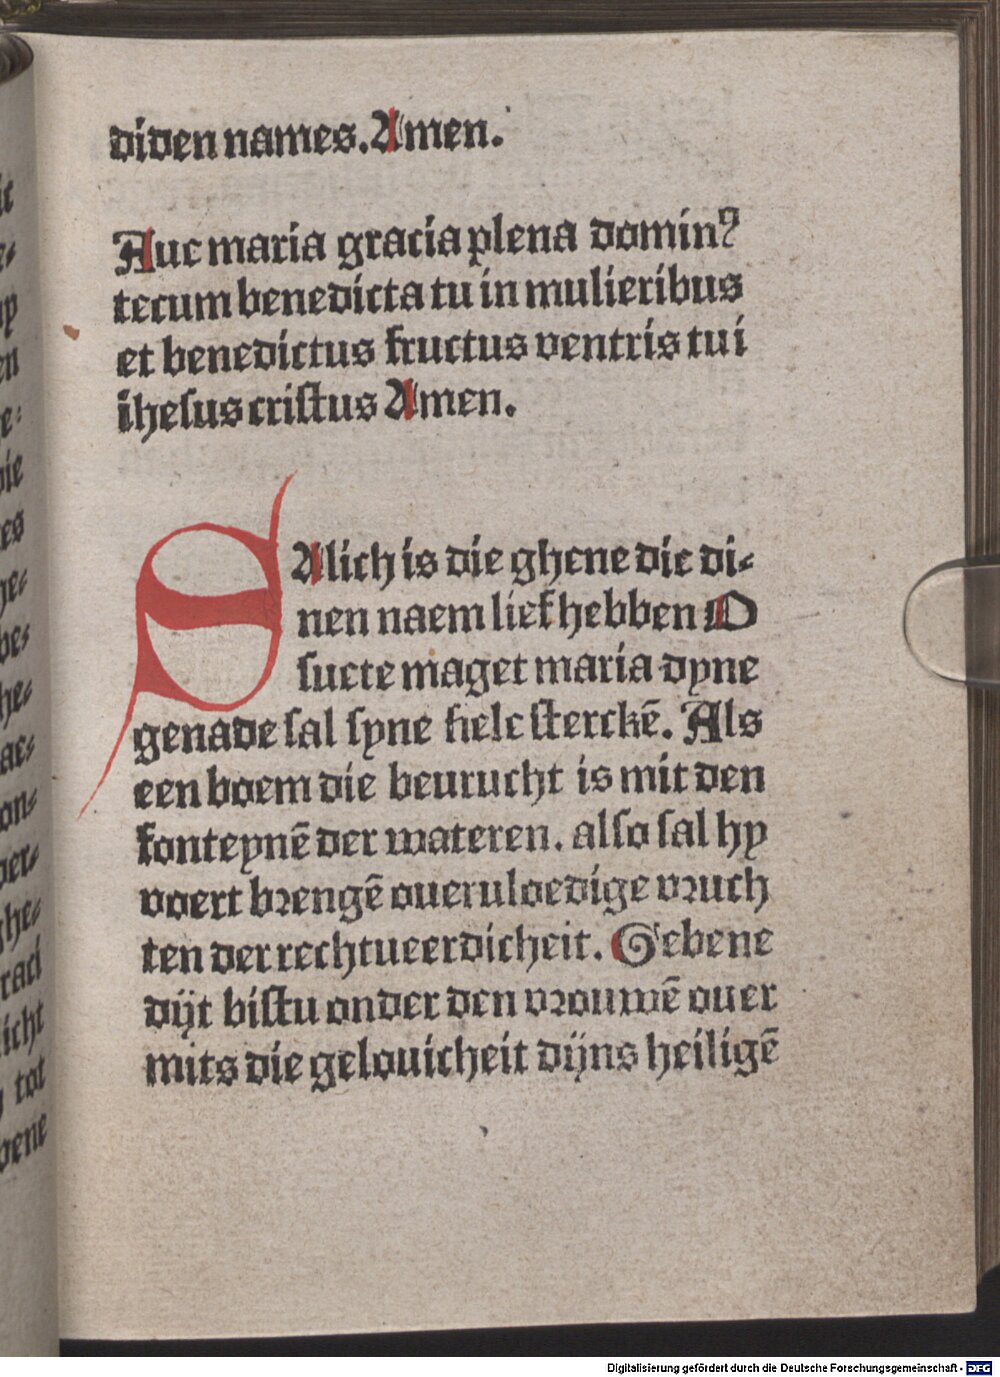 diden names. Amen.
Aue maria gracia plena domin⁹
tecum benedicta tu in mulieribus
et benedictus fructus ventris tui
ihesus cristus Amen.
SAlich is die ghene die di-
nen naem lief hebben O
suete maget maria dyne
genade sal syne siele sterckē. Als
een boem die beurucht is mit den
fonteynē der wateren. also sal hy
voert brengē oueruloedige vruch
ten der rechtueerdicheit. Gebene
dijt bistu onder den vrouwē ouer
mits die gelouicheit dijns heiligē
Digitalisierung gefördert durch die Deutsche Forschungsgemeinschaft - DFG